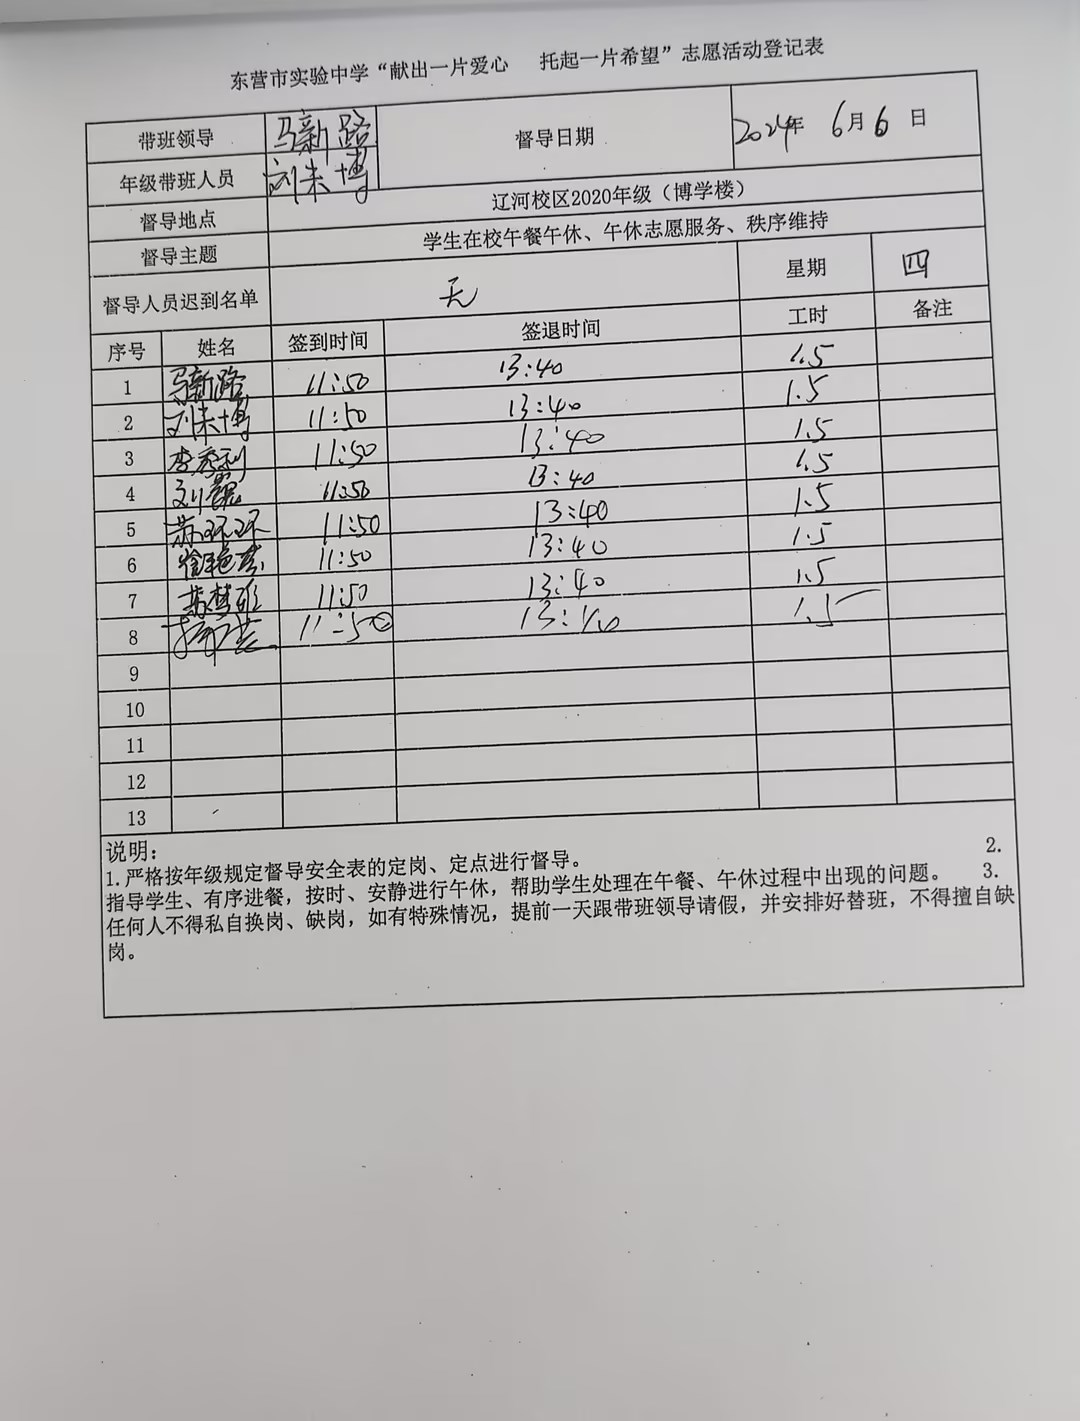 东营市实验中学“献出一片爱心 托起一片希望”志愿活动登记表
带班领导 马新路 督导日期 2024年 6月6日
年级带班人员 刘来博
督导地点 辽河校区2020年级（博学楼）
督导主题 学生在校午餐午休、午休志愿服务、秩序维持
督导人员迟到名单 无 星期 四
序号 姓名 签到时间 签退时间 工时 备注
1 马新路 11:50 13:40 1.5
2 刘来博 11:50 13:40 1.5
3 李秀利 11:50 13:40 1.5
4 刘 11:50 13:40 1.5
5 苏环环 11:50 13:40 1.5
6 11:50 13:40 1.5
7 苏梦雅 11:50 13:40 1.5
8 11:50 13:40 1.5
9
10
11
12
13
说明：
1.严格按年级规定督导安全表的定岗、定点进行督导。 2.
指导学生、有序进餐，按时、安静进行午休，帮助学生处理在午餐、午休过程中出现的问题。 3.
任何人不得私自换岗、缺岗，如有特殊情况，提前一天跟带班领导请假，并安排好替班，不得擅自缺
岗。